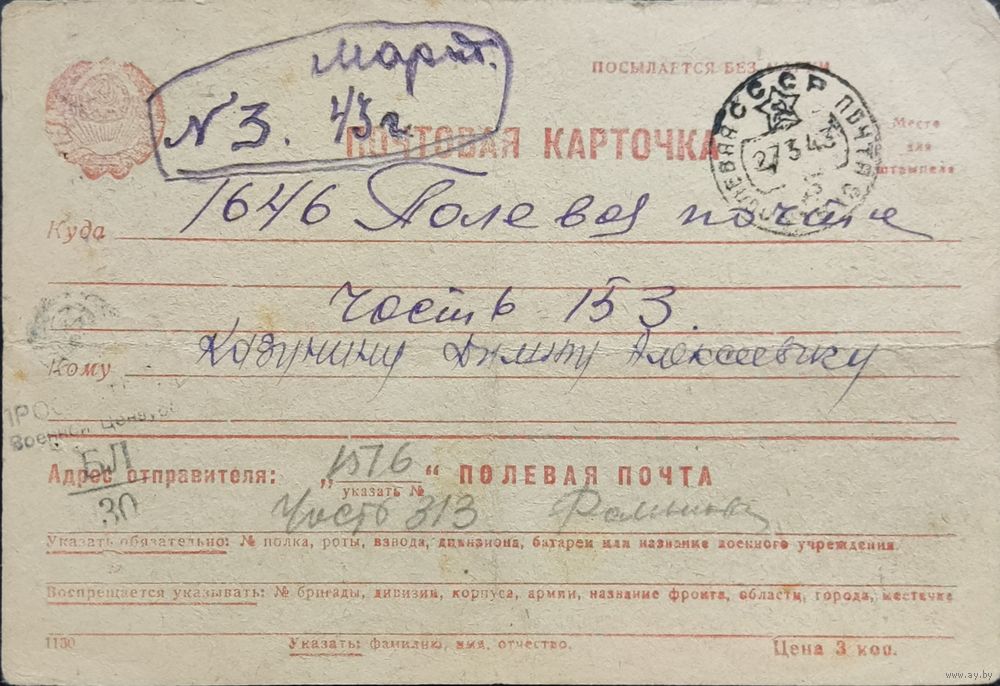 Март.
N 3. 43 г
ПОСЫЛАЕТСЯ БЕЗ МАРКИ
ПОЧТОВАЯ КАРТОЧКА
СССР ПОЛЕВАЯ ПОЧТА
27 3 43
Место
для
штемпеля
Куда 1646 Полевая почта
Часть 153.
Кому
Алексеевичу
Военной Цензурой
БЛ
30
Адрес отправителя: „1576“ ПОЛЕВАЯ ПОЧТА
указать №
Часть 313
Указать обязательно: № полка, роты, взвода, дивизиона, батареи или название военного учреждения.
Воспрещается указывать: № бригады, дивизии, корпуса, армии, название фронта, области, города, местечка
1130 Указать: фамилию, имя, отчество. Цена 3 коп.
www.ay.by